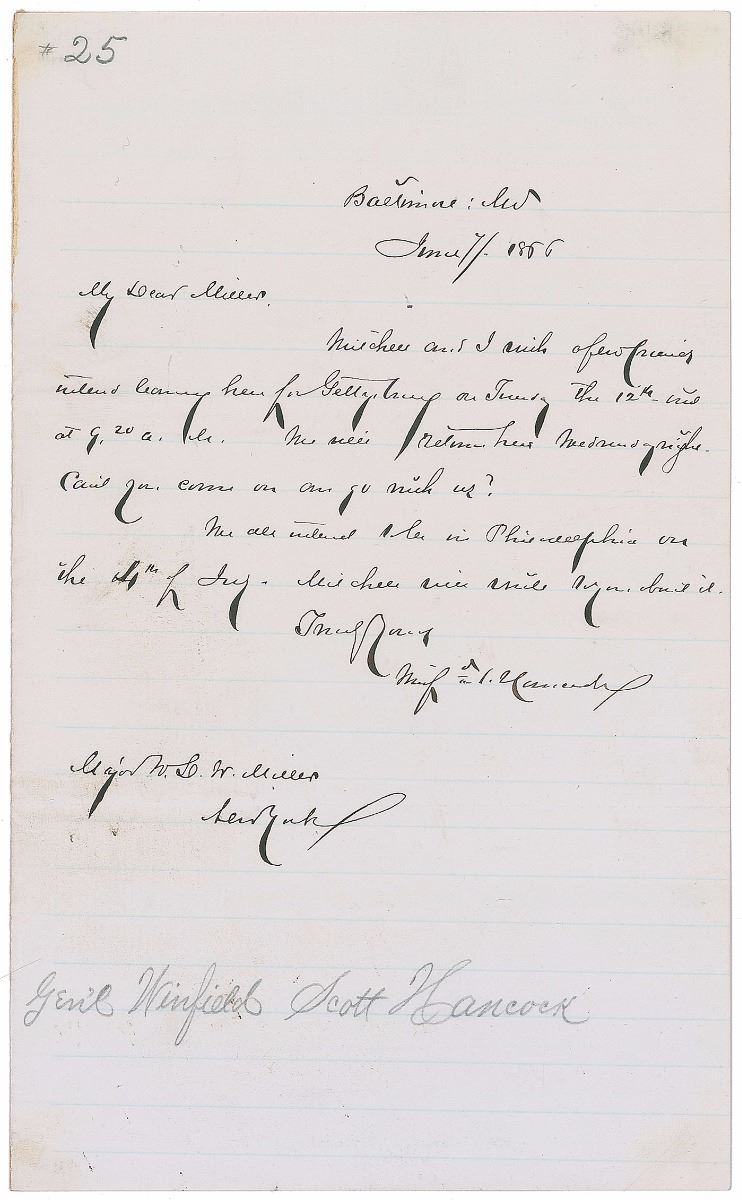 # 25
Baltimore: Md
June 7/. 1866
My Dear Miller.
Mitchell and I with a few friends
intend leaving here for Gettysburg on Tuesday the 12th inst
at 9.20 a. M. We will return here Wednesday night.
Can't you come on and go with us?
We all intend to be in Philadelphia on
the 4th of July. Mitchell will write to you about it.
Truly Yours
Winf d S. Hancock
Major W. D. W. Miller
New York
Gen'l Winfield Scott Hancock